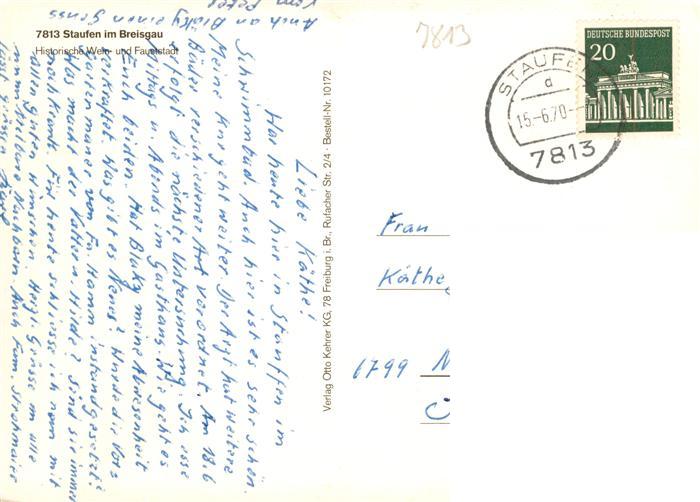 7813 Staufen im Breisgau
Historische Wein- und Fauststadt
7813
DEUTSCHE BUNDESPOST
20
STAUFEN
d
15.-6.70.-
7813
Verlag Otto Kehrer KG, 78 Freiburg i. Br., Rufacher Str. 2/4 · Bestell-Nr. 10172
Frau
Käthe
1799
Liebe Käthe!
War heute hier in Stauffen im
Schwimmbad. Auch hier ist es sehr schön.
Meine Kur geht weiter. Der Arzt hat weitere
Bäder verschiedener Art verordnet. Am 18.6
erfolgt die nächste Untersuchung. Ich esse
Mittags u. Abends im Gasthaus. Wie geht es
Euch beiden. Hat Blaky meine Abwesenheit
verkraftet. Was gibt es Neues? Wurde die Vor-
von Fr. Hamm instandgesetzt?
Was macht der Vater u. Hilde? Sind sie immer
noch krank. Für heute schliesse ich nun mit
allen guten Wünschen. Herzl. Grüsse an alle
Nachbarn. Auch Fam. Strohmaier
lässt grüssen
Auch an Blaky einen Gruss
vom Peter